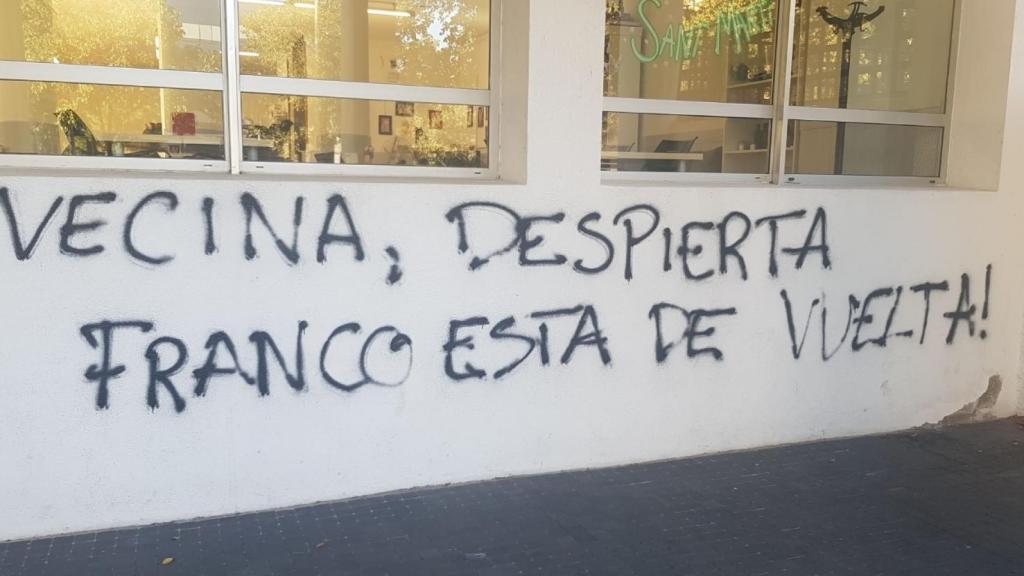 SANT MARTÍ
VECINA, DESPIERTA
FRANCO ESTA DE VUELTA!